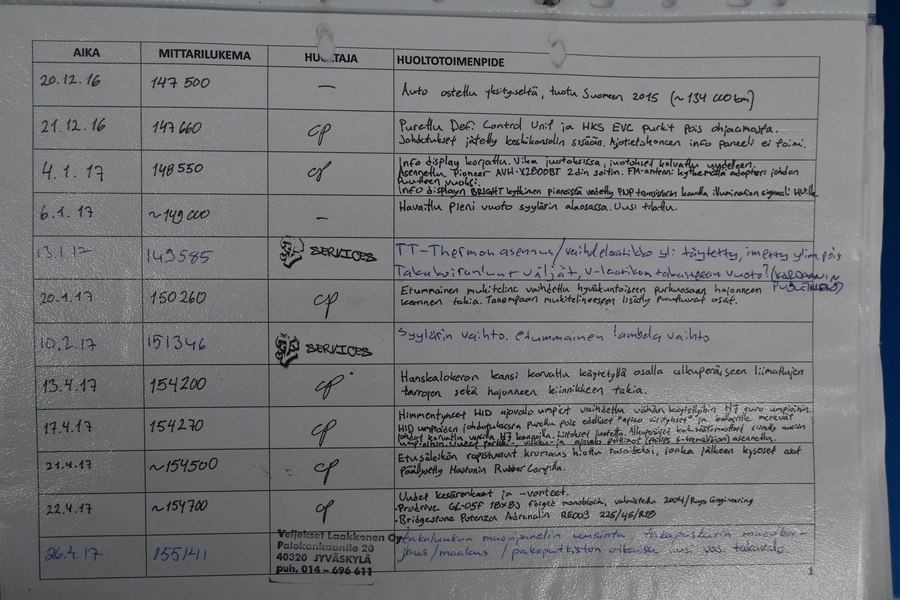 AIKA MITTARILUKEMA HUOLTAJA HUOLTOTOIMENPIDE
20.12.16 147 500 — Auto ostettu yksityiseltä, tuotu Suomeen 2015 (~134 000 km)
21.12.16 147660 CP Purettu Defi Control Unit ja HKS EVC purkit pois ohjaamosta.
Johdotukset jätetty keskikonsolin sisään. Ajotietokoneen info paneeli ei toimi.
4.1.17 148550 CP Info display korjattu. Vika juotoksissa, juotokset korvattu uudelleen.
Asennettu Pioneer AVH-X2800BT 2din soitin. FM-antenni kytkemättä adapteri johdon
puutteen vuoksi.
Info displayn BRIGHT kytkimen pinnassa vedetty PNP transistorin kautta illumination signaali
6.1.17 ~149 000 — Havaittu pieni vuoto syylärin alaosassa. Uusi tilattu.
13.1.17 149585 SERVICES TT-Thermon asennus / vaihdelaatikko yli täytetty, imetty ylim. pois
Takakoiranluut väljät, v-laatikon takastefan vuoto?
20.1.17 150260 CP Etummainen mukiteline vaihdettu hyväkuntoiseen purkuosaan hajonneen
kannen takia. Taaempaan mukitelineeseen lisätty puuttuvat osat.
10.2.17 151346 SERVICES Syylärin vaihto, etummainen lambda vaihto
13.4.17 154200 CP Hanskalokeron kansi korvattu käytetyllä osalla alkuperäiseen liimattujen
tarrojen sekä hajonneen kiinnikkeen takia.
17.4.17 154270 CP Himmentyneet HID ajovalo umpiot vaihdettu vähän käytettyihin H7 euro umpioihin.
HID umpioiden johdotuksesta purettu pois edelliset
johdot korvattu uusilla H7 kannoilla. Liitokset juotettu.
21.4.17 ~154500 CP Etusäleikön rapistunut kromaus hiottu tasaiseksi, jonka jälkeen kyseiset osat
päällystetty Hasturin Rubber Compilla.
22.4.17 ~154700 CP Uudet kesärenkaat ja -vanteet.
-Prodrive GC-05F 18x8J Forged monoblock, valmistettu 2004/Rays Engineering
-Bridgestone Potenza Adrenalin RE003 225/45/R18
26.4.17 155141 Veljekset Laakkonen Oy
Palokankaantie 20
40320 JYVÄSKYLÄ
puh. 014 – 696 611
takaluukun muovipanelin uusinta, takapuskurin
/maalaus / pakoputkiston oikaisu, uusi vas. takavalo
1